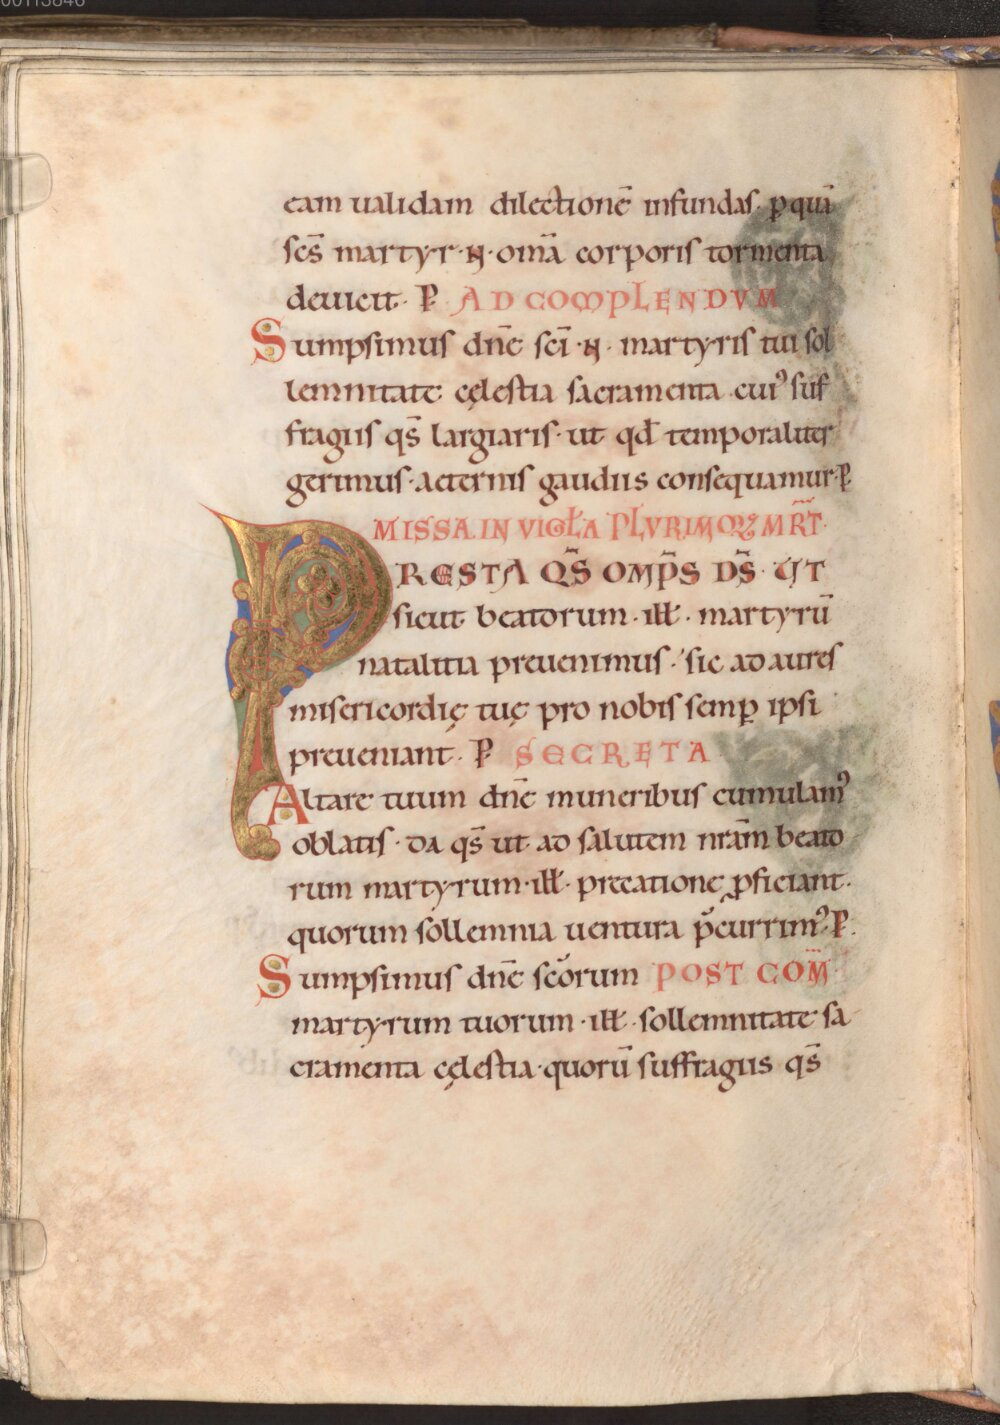 eam ualidam dilectionē infundas· ꝑ quā
scs̄ martyr ·N· om̄a corporis tormenta
deuicit· P AD COMPLENDVM
Sumpsimus dn̄e sc̄i ·N· martyris tui sol
lemnitate cęlestia sacramenta· cuiꝰ suf
fragiis qs̄ largiaris· ut qd̄ temporaliter
gerimus· aeternis gaudiis consequamur· P
MISSA IN VIGŁA PLVRIMOꝜ MR̄T·
PRESTA QS̄ OMP̄S DS̄· UT
sicut beatorum ·ill̄· martyrū
natalitia preuenimus· sic ad aures
misericordię tuę pro nobis semꝑ ipsi
preueniant· P SECRETA
Altare tuum dn̄e muneribus cumulamꝰ
oblatis· da qs̄ ut ad salutem nr̄am beato
rum martyrum ·ill̄· precatione ꝓficiant·
quorum sollemnia uentura p̄currimꝰ· P·
Sumpsimus dn̄e sc̄orum POST COM̄
martyrum tuorum ·ill̄· sollemnitate sa
cramenta cęlestia· quorū suffragiis qs̄